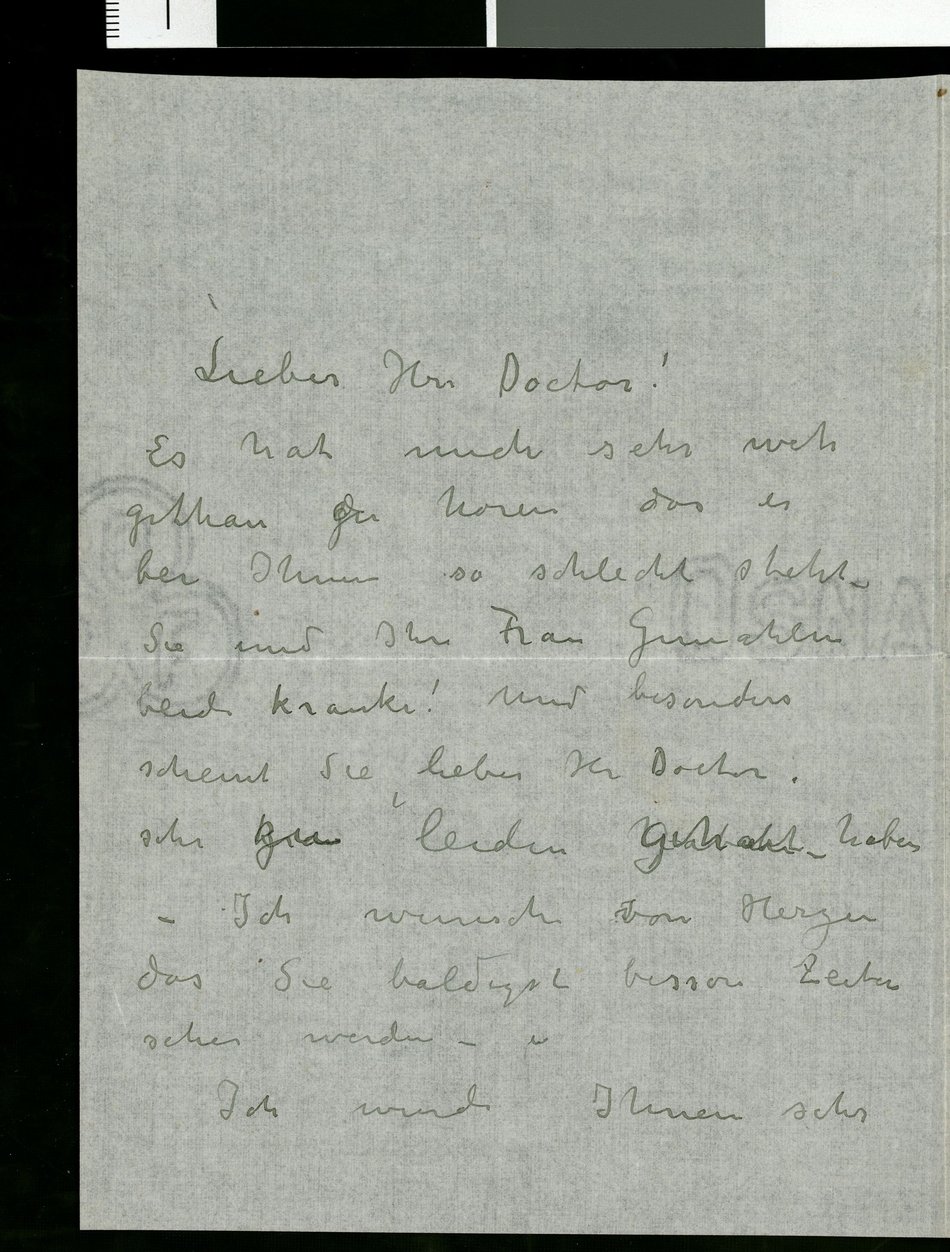 Lieber Herr Doctor!
Es hat mich sehr weh
gethan zu horen das es
bei Ihnen so schlecht steht_
Sie und Ihre Frau Gemahlin
beide kranke! Und besonders
scheint Sie, lieber Herr Doctor.
sehr leiden gehabt_ haben
– Ich wunsche von Herzen
das Sie baldigst besson Zeiten
sehen werden –
Ich wurde Ihnen sehr